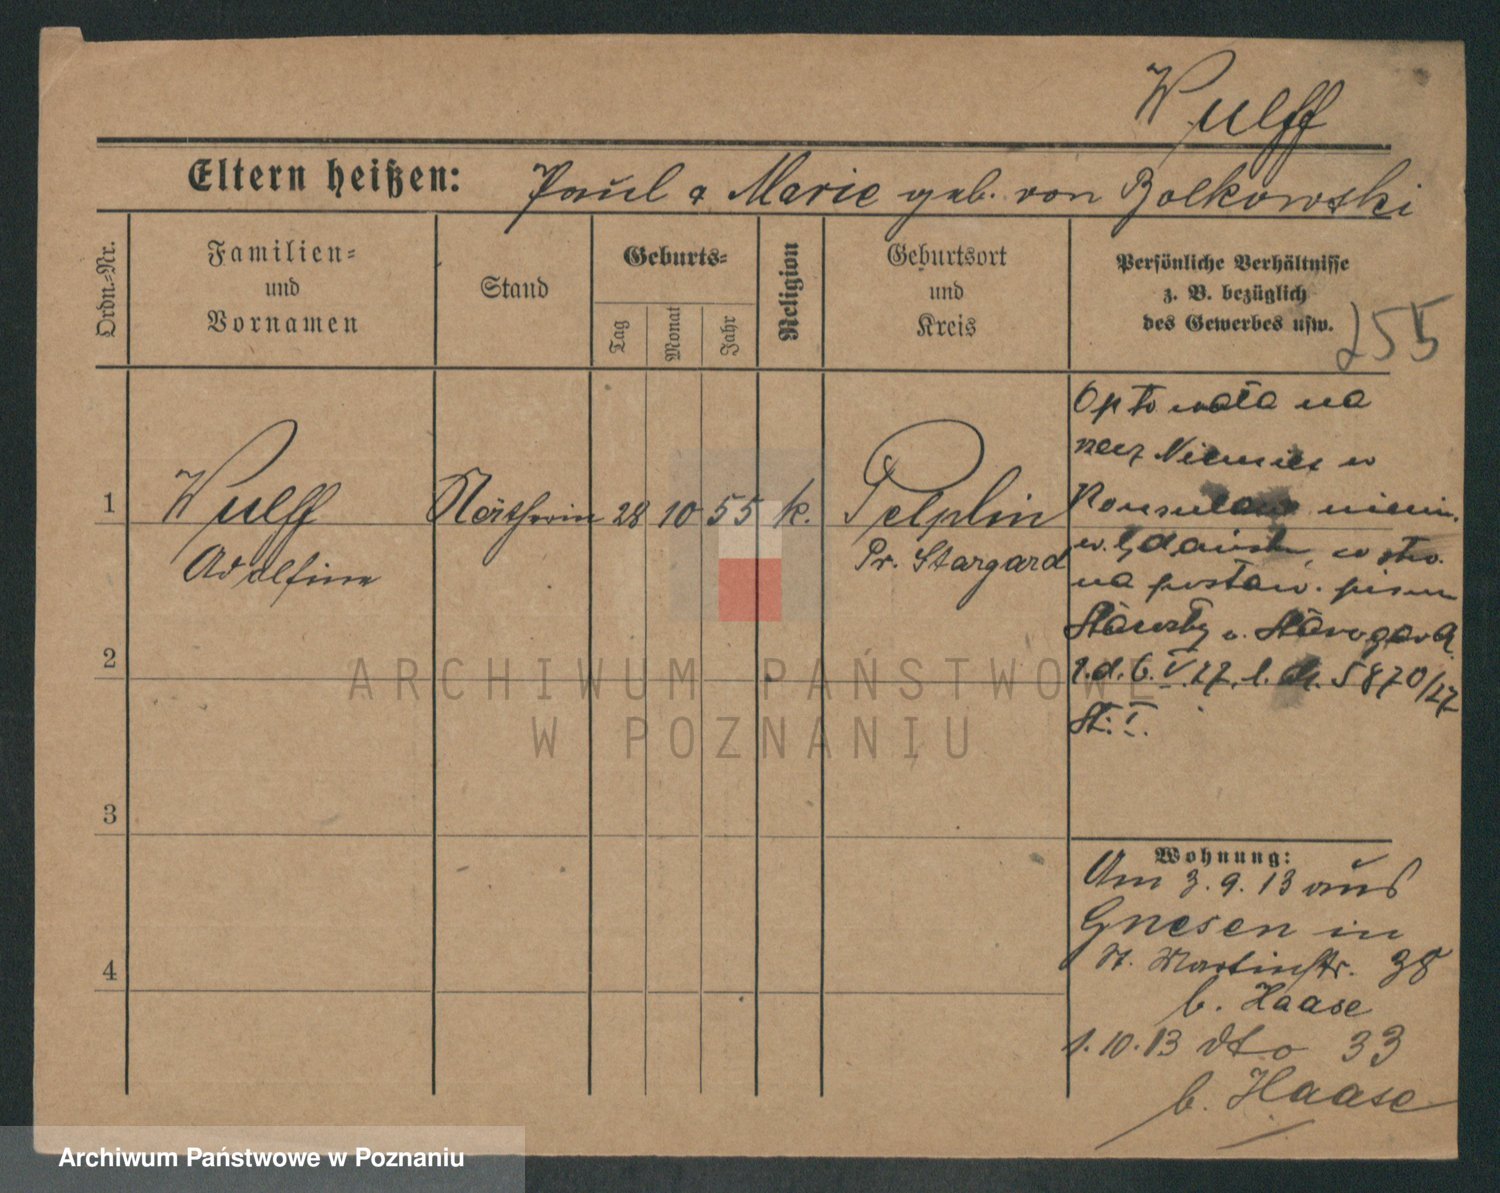 Wulff
Eltern heißen: Paul & Marie geb. von Bolkowski
Ordn.-Nr.
Familien-
und
Vornamen
Stand
Geburts-
Tag
Monat
Jahr
Religion
Geburtsort
und
Kreis
Persönliche Verhältnisse
z. B. bezüglich
des Gewerbes usw.
255
1 Wulff Nätherin 28 10 55 k. Pelplin
Adolfine Pr. Stargard
2
3
4
Optowała na
rzecz Niemiec w
Konsulacie niem.
w Gdańsku,
na postaw. pisma
Starosty w Starogard
z d. 6. V. 27. l. dz. 5870/27
St. I.
Wohnung:
Am 3. 9. 13 aus
Gnesen in
St. Martinstr. 38
b. Haase
1. 10. 13 dto 33
b. Haase
ARCHIWUM PAŃSTWOWE
W POZNANIU
Archiwum Państwowe w Poznaniu